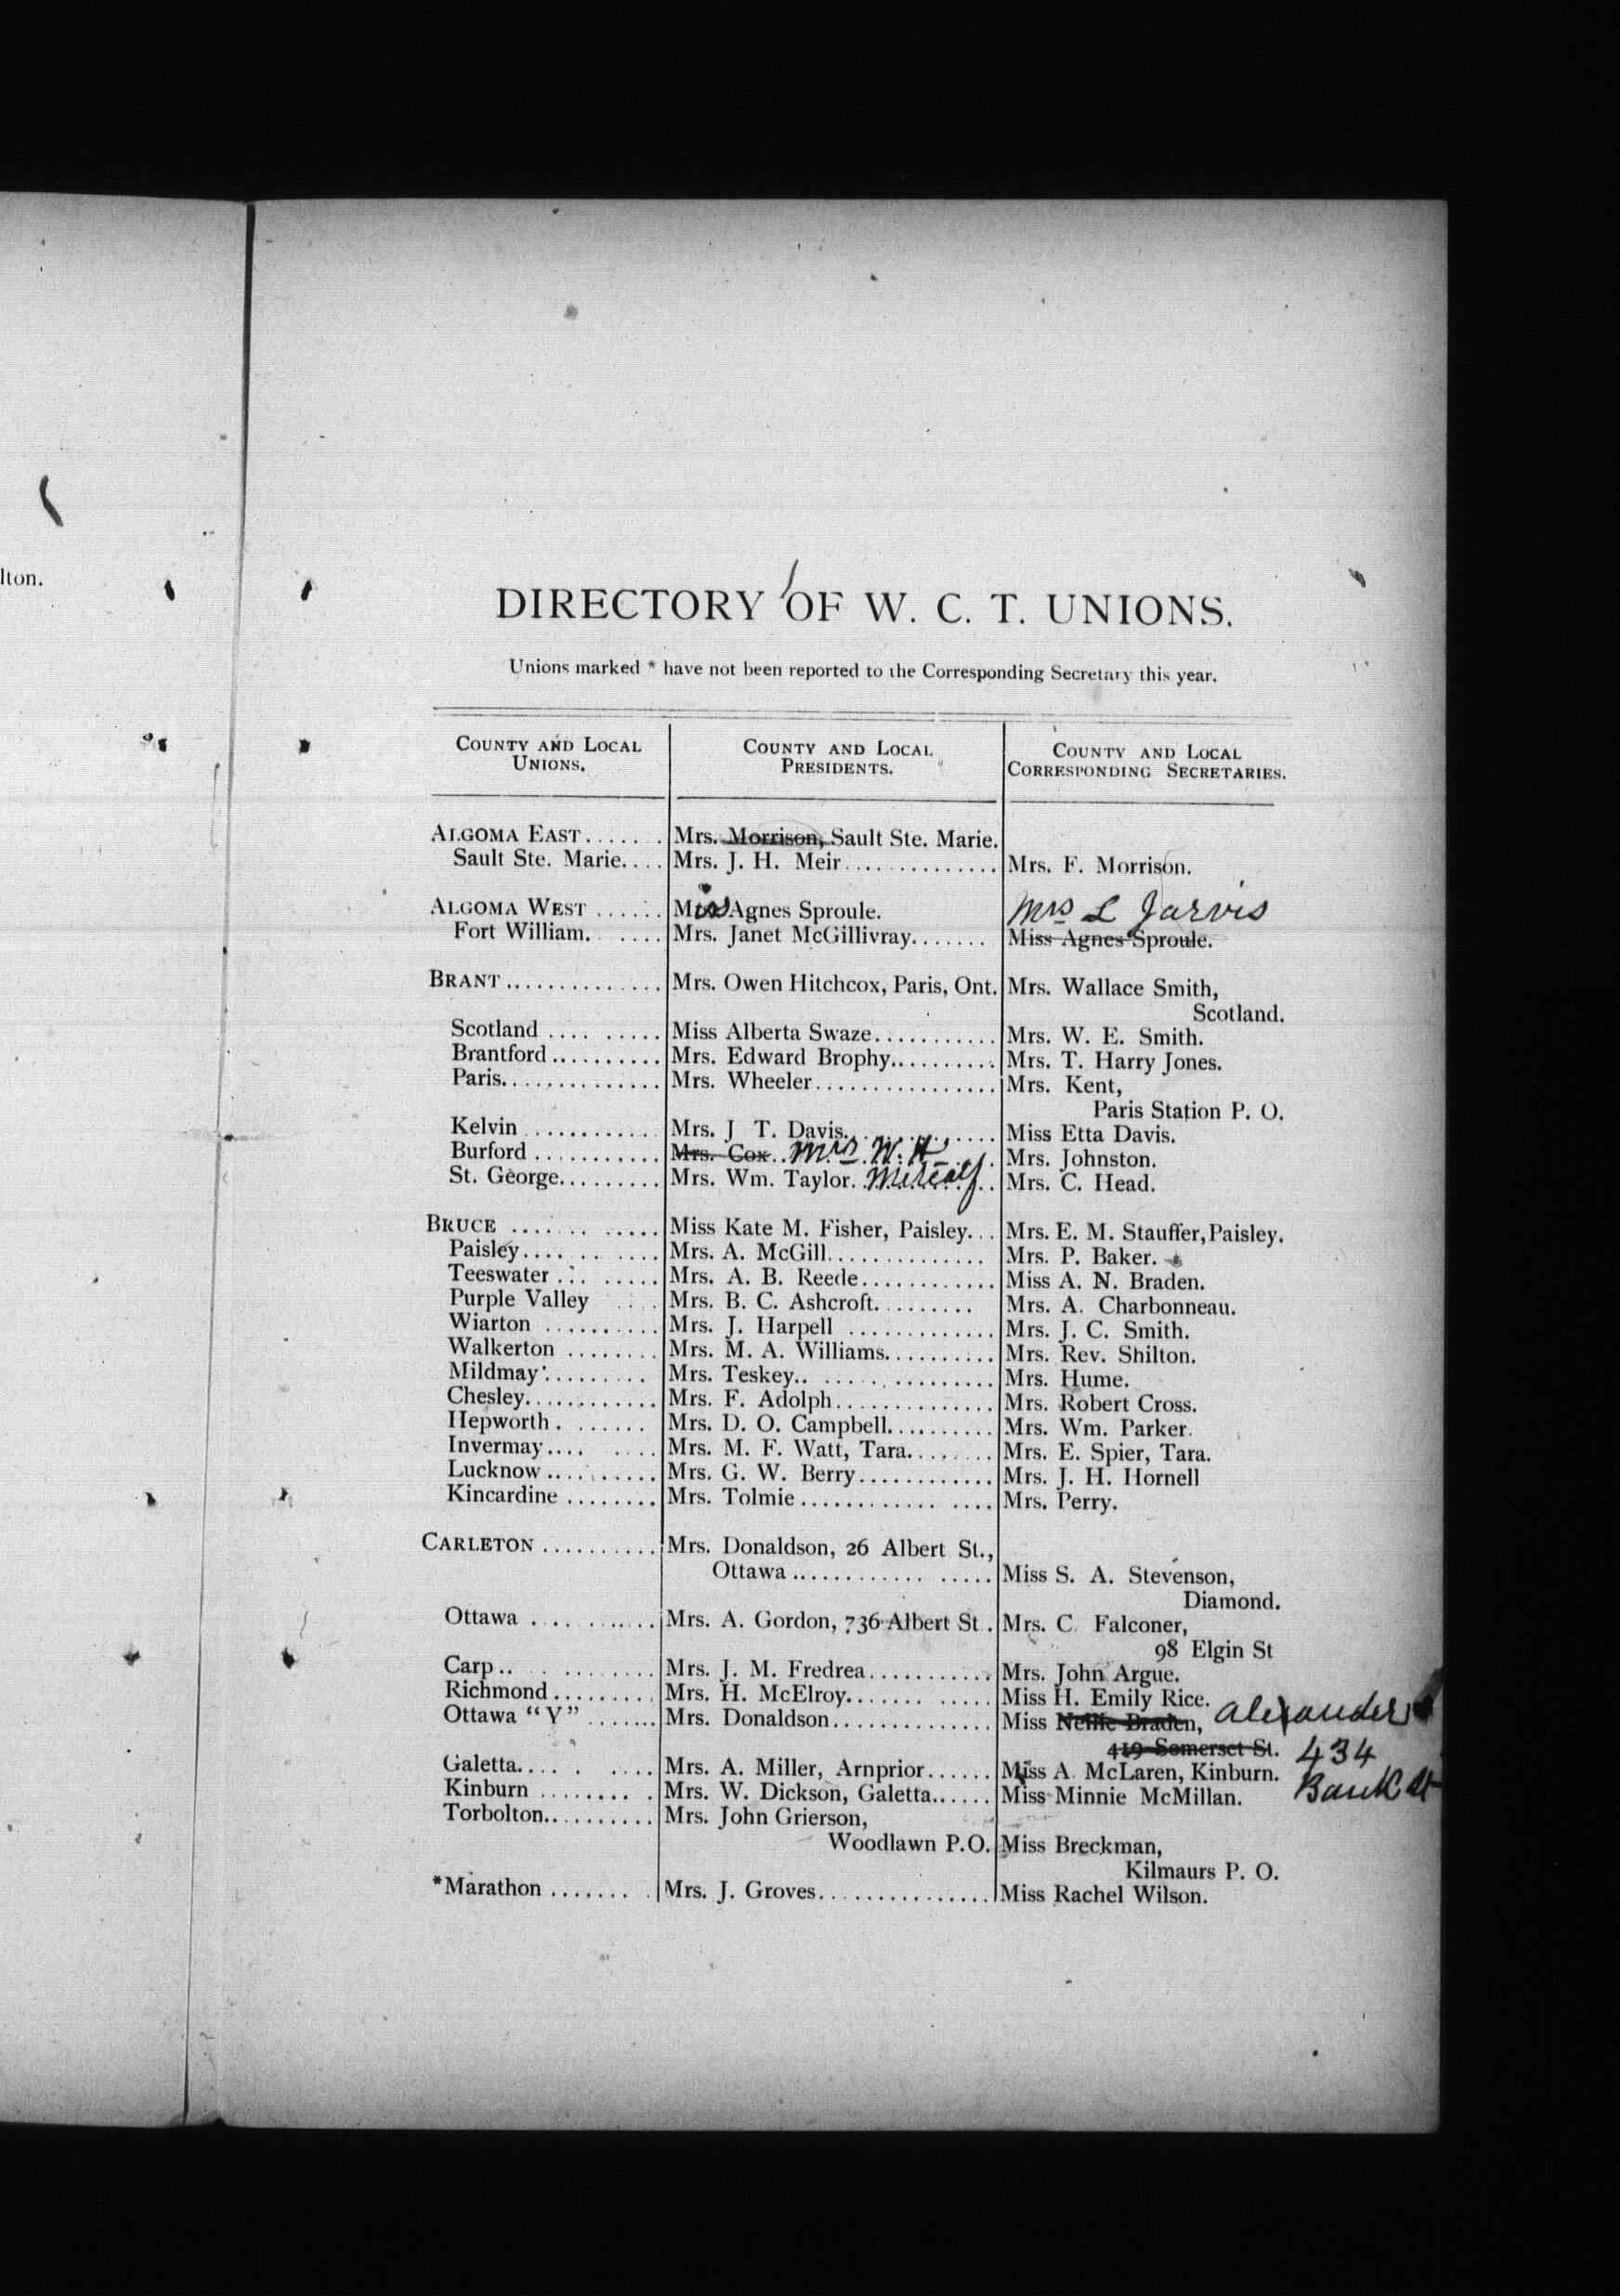 lton.
DIRECTORY OF W. C. T. UNIONS.
Unions marked * have not been reported to the Corresponding Secretary this year.
COUNTY AND LOCAL UNIONS. COUNTY AND LOCAL PRESIDENTS. COUNTY AND LOCAL CORRESPONDING SECRETARIES.
ALGOMA EAST....... Mrs. Morrison, Sault Ste. Marie.
Sault Ste. Marie.... Mrs. J. H. Meir.............. Mrs. F. Morrison.
Mrs L Jarvis
ALGOMA WEST ...... Miss Agnes Sproule.
Fort William. ..... Mrs. Janet McGillivray....... Miss Agnes Sproule.
BRANT.............. Mrs. Owen Hitchcox, Paris, Ont. Mrs. Wallace Smith,
Scotland.
Scotland .... ..... Miss Alberta Swaze........... Mrs. W. E. Smith.
Brantford.......... Mrs. Edward Brophy.......... Mrs. T. Harry Jones.
Paris.............. Mrs. Wheeler................ Mrs. Kent,
Paris Station P. O.
Kelvin ............ Mrs. J T. Davis............. Miss Etta Davis.
Burford ........... Mrs. Cox.. Mrs. W. H. Metcalf Mrs. Johnston.
St. George......... Mrs. Wm. Taylor. Mrs. C. Head.
BRUCE ....... ..... Miss Kate M. Fisher, Paisley... Mrs. E. M. Stauffer, Paisley.
Paisley.... . ..... Mrs. A. McGill.............. Mrs. P. Baker.
Teeswater ... ..... Mrs. A. B. Reede............ Miss A. N. Braden.
Purple Valley .... Mrs. B. C. Ashcroft......... Mrs. A. Charbonneau.
Wiarton .......... Mrs. J. Harpell ............. Mrs. J. C. Smith.
Walkerton ........ Mrs. M. A. Williams.......... Mrs. Rev. Shilton.
Mildmay ......... Mrs. Teskey.. ............... Mrs. Hume.
Chesley............ Mrs. F. Adolph.............. Mrs. Robert Cross.
Hepworth . ...... Mrs. D. O. Campbell.......... Mrs. Wm. Parker.
Invermay.... .... Mrs. M. F. Watt, Tara........ Mrs. E. Spier, Tara.
Lucknow .......... Mrs. G. W. Berry............ Mrs. J. H. Hornell
Kincardine ........ Mrs. Tolmie ............ .... Mrs. Perry.
CARLETON .......... Mrs. Donaldson, 26 Albert St.,
Ottawa ............ ..... Miss S. A. Stevenson,
Diamond.
Ottawa ........... Mrs. A. Gordon, 736 Albert St . Mrs. C. Falconer,
98 Elgin St
Carp .. . ........ Mrs. J. M. Fredrea........... Mrs. John Argue.
Richmond......... Mrs. H. McElroy....... ..... Miss H. Emily Rice.
Ottawa "Y" ....... Mrs. Donaldson.............. Miss Nellie Braden, Alexander
419 Somerset St. 434
Galetta.... . .... Mrs. A. Miller, Arnprior...... Miss A. McLaren, Kinburn.
Kinburn ........ . Mrs. W. Dickson, Galetta...... Miss Minnie McMillan. Bank St
Torbolton.......... Mrs. John Grierson,
Woodlawn P.O. Miss Breckman,
Kilmaurs P. O.
*Marathon ....... . Mrs. J. Groves............... Miss Rachel Wilson.